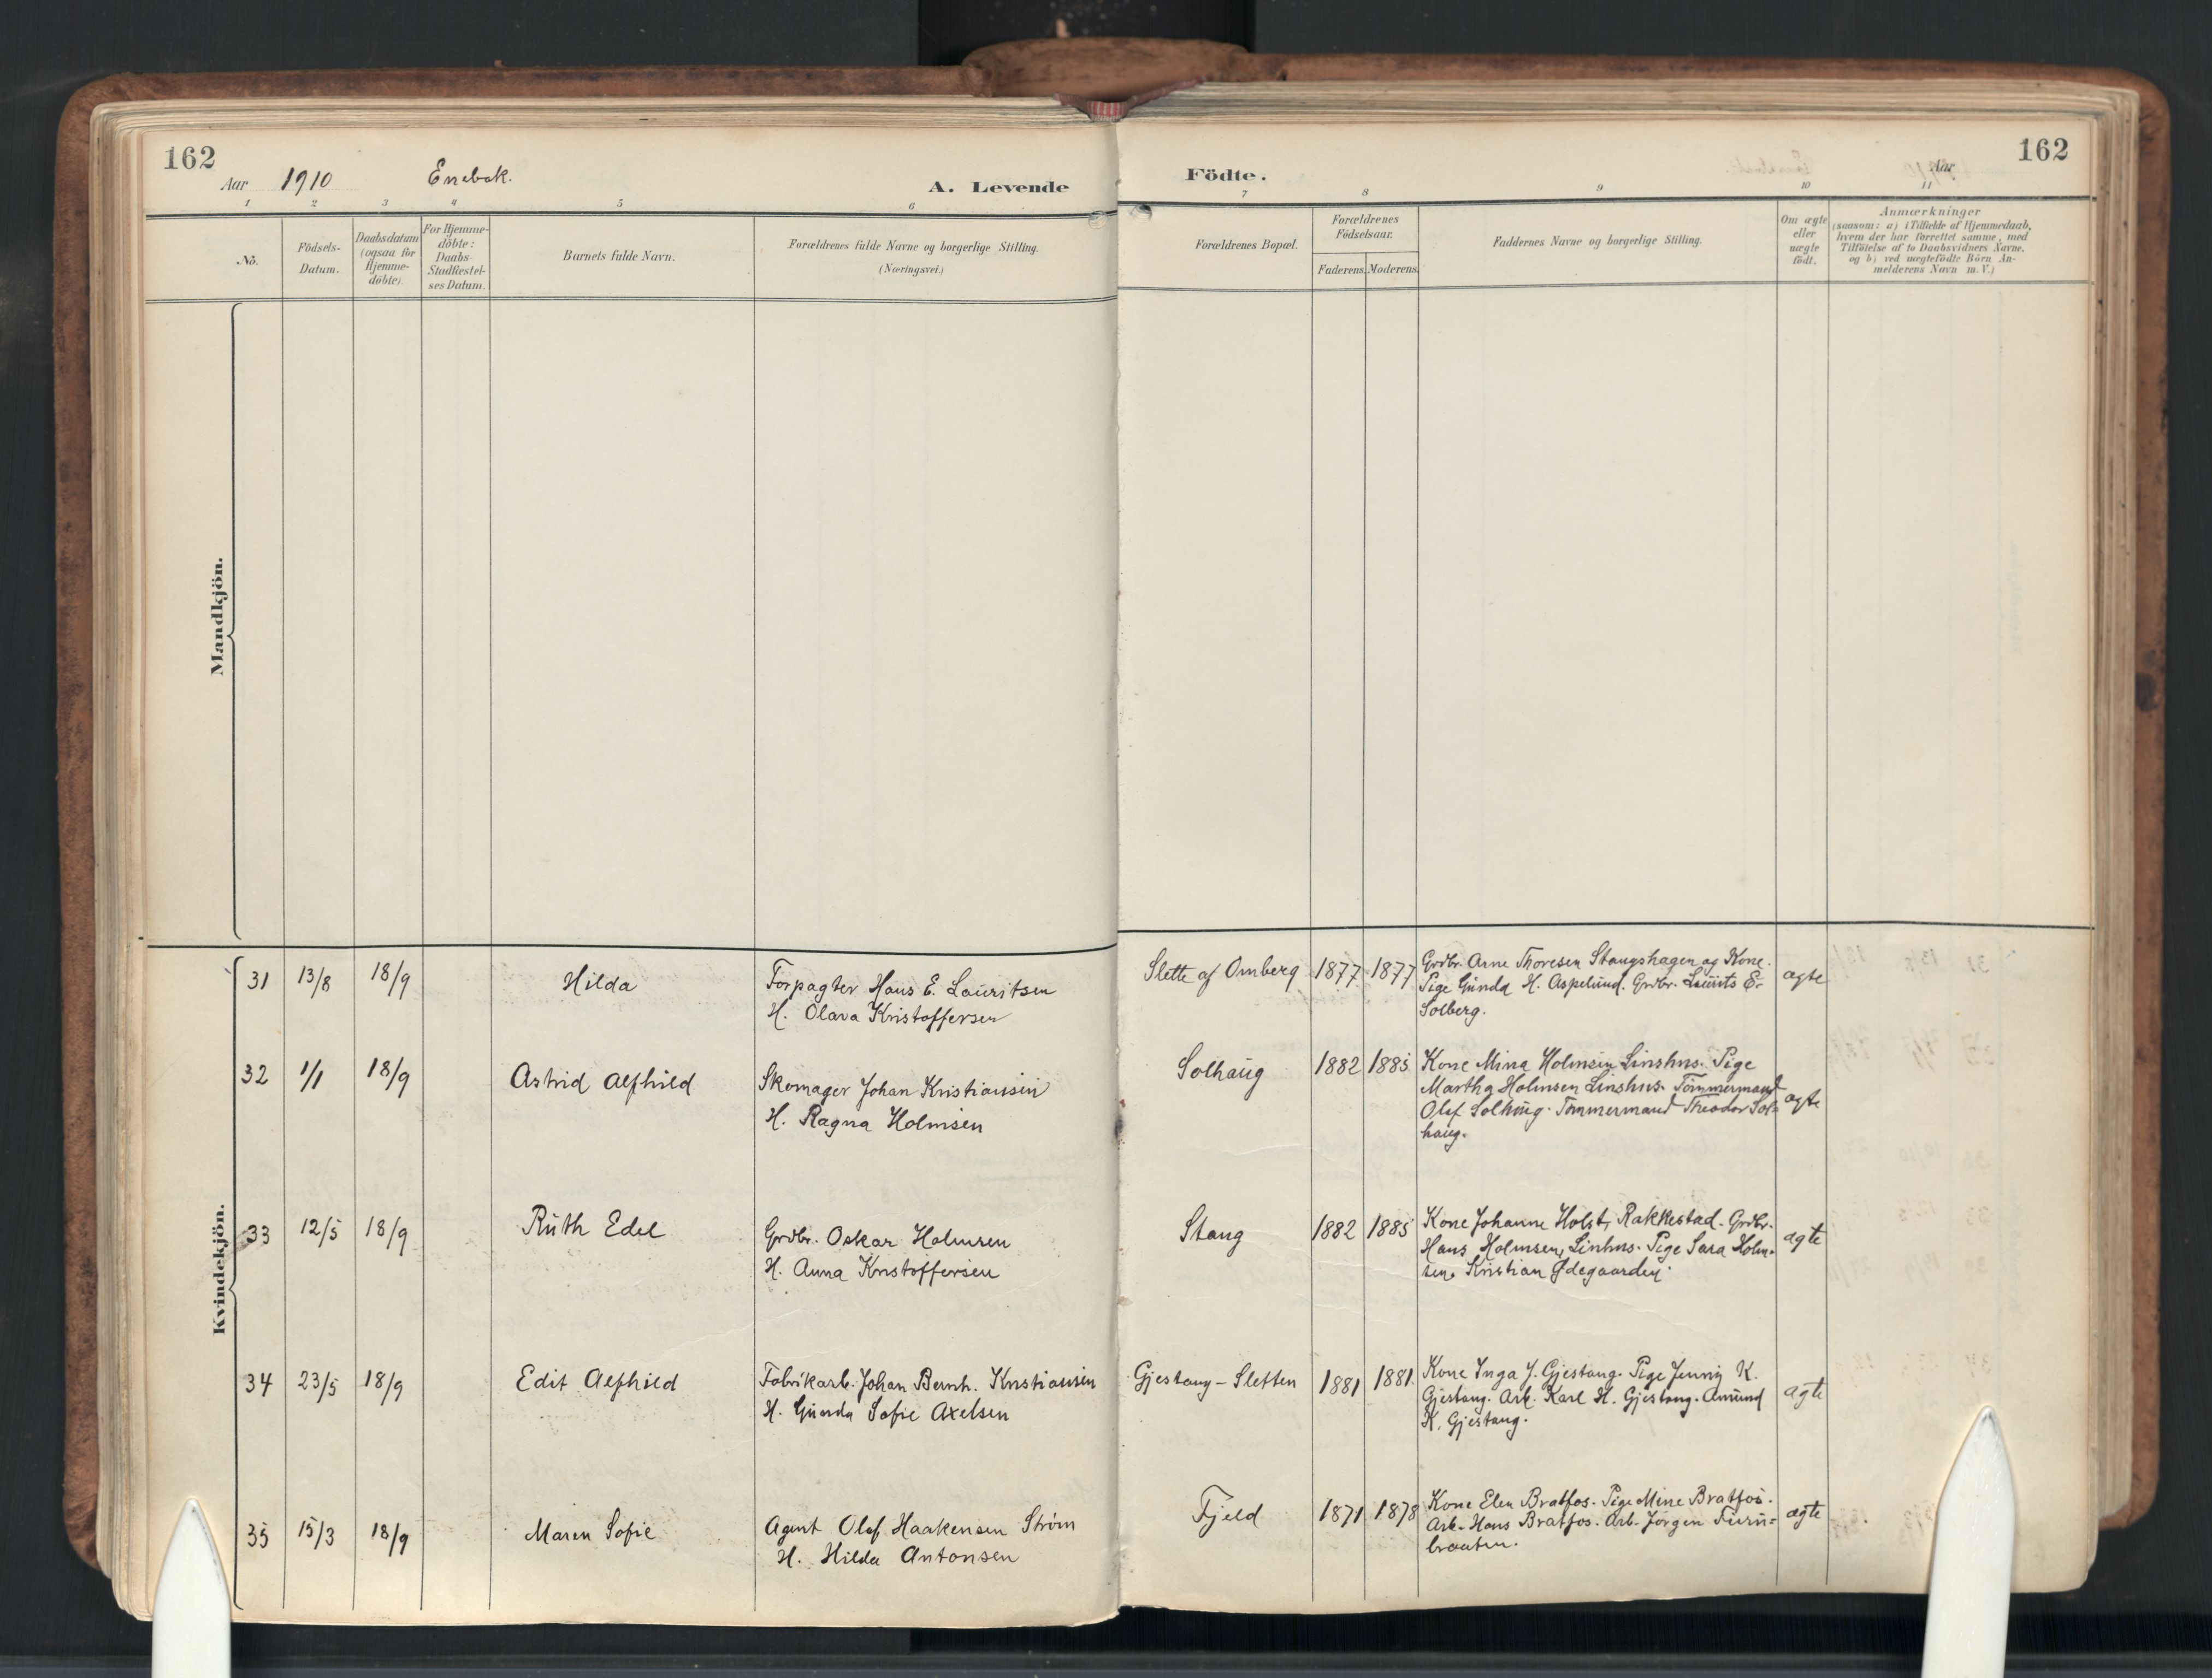 162
Aar 1910 Enebak.
A. Levende
Födte.
Aar
162
1 2 3 4 5 6 7 8 9 10 11
No.
Födsels-
Datum.
Daabsdatum
(ogsaa for
Hjemme-
döbte).
For Hjemme-
döbte:
Daabs-
Stadfæstel-
ses Datum.
Barnets fulde Navn.
Forældrenes fulde Navne og borgerlige Stilling.
(Næringsvei.)
Forældrenes Bopæl.
Forældrenes
Födselsaar.
Faderens. Moderens.
Faddernes Navne og borgerlige Stilling.
Om ægte
eller
uægte
födt.
Anmærkninger
(saasom: a) i Tilfælde af Hjemmedaab,
hvem der har forrettet samme, med
Tilföielse af to Daabsvidners Navne.
og b) ved uægtefödte Börn An-
melderens Navn m. V.)
Mandkjön.
Kvindekjön.
31 13/8 18/9 Hilda
Forpagter Hans E. Lauritsen
H. Olava Kristoffersen
Slette af Omberg 1877 1877
Grdbr. Arne Thoresen Stangshagen og Kone.
Pige Gunda H. Aspelund. Grdbr. Laurits E.
Solberg.
ægte
32 1/1 18/9 Astrid Alfhild
Skomager Johan Kristiansen
H. Ragna Holmsen
Solhaug 1882 1885
Kone Mina Holmsen Linshus. Pige
Martha Holmsen Linshus. Tömmermand
Olef Solhaug. Tömmermand Theodor Sol-
haug.
ægte
33 12/5 18/9 Ruth Edel
Grdbr. Oskar Holmsen
H. Anna Kristoffersen
Stang 1882 1885
Kone Johanne Holst, Rakkestad. Grdbr.
Hans Holmsen, Linhus. Pige Sara Holm-
sen. Kristian Ødegaarden.
ægte
34 23/5 18/9 Edit Alfhild
Fabrikarb. Johan Bernh. Kristiansen
H. Gunda Sofie Axelsen
Gjestang - Sletten 1881 1881
Kone Inga J. Gjestang. Pige Jenny K.
Gjestang. Arb. Karl H. Gjestang. Amund
K. Gjestang.
ægte
35 15/3 18/9 Maren Sofie
Agent Olaf Haakensen Ström
H. Hilda Antonsen
Fjeld 1871 1878
Kone Elen Bratfos. Pige Mine Bratfos.
Arb. Hans Bratfos. Arb. Jörgen Furu-
braaten.
ægte